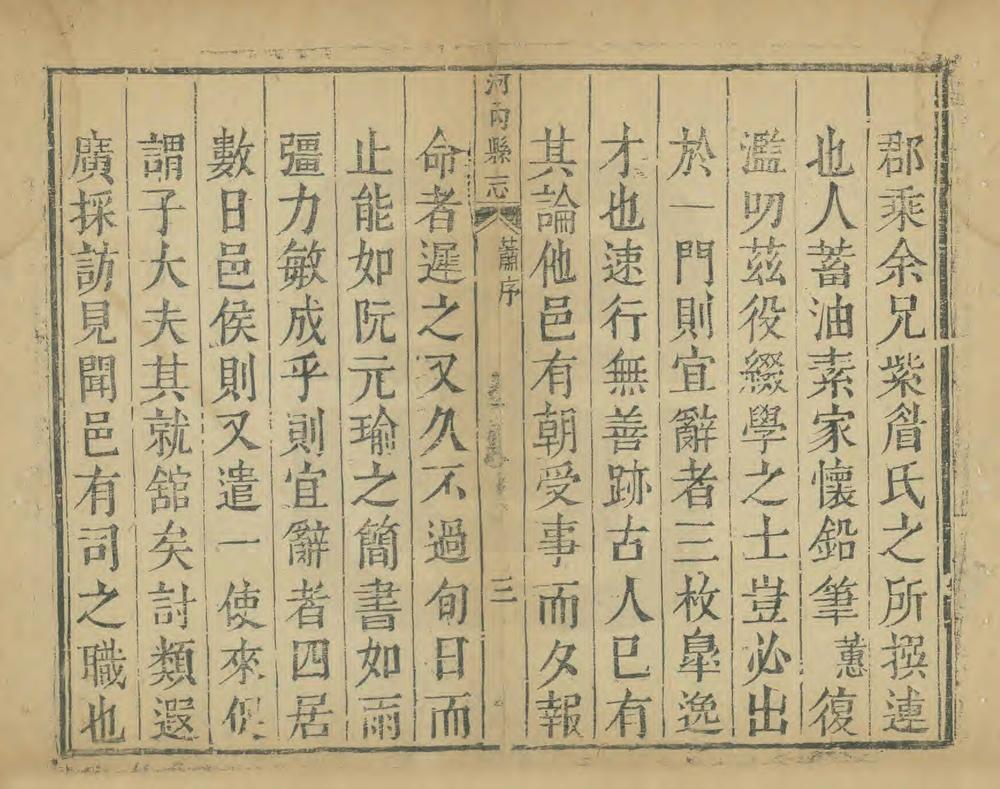 郡乘余兄紫眉氏之所撰連
也人蓄油素家懷鉛筆蕙復
濫叨茲役綴學之士豈必出
於一門則宜辭者三枚臯逸
才也速行無善跡古人已有
其論他邑有朝受事而夕報
河內縣志 蕭序 三
命者遲之又久不過旬日而
止能如阮元瑜之簡書如雨
彊力敏成乎則宜辭者四居
數日邑侯則又遣一使來
謂子大夫其就舘矣討類遐
廣採訪見聞邑有司之職也